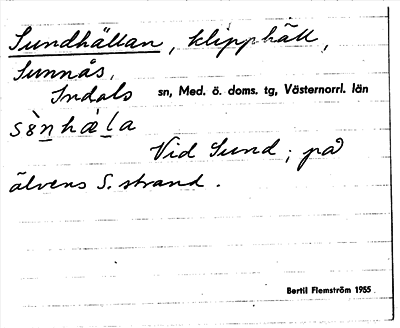 Sundhällan, klipphäll,
Sunnås,
Indals sn, Med. ö. doms. tg, Västernorrl. län
sènhæ̀la
Vid Sund; på
älvens S. strand.
Bertil Flemström 1955.